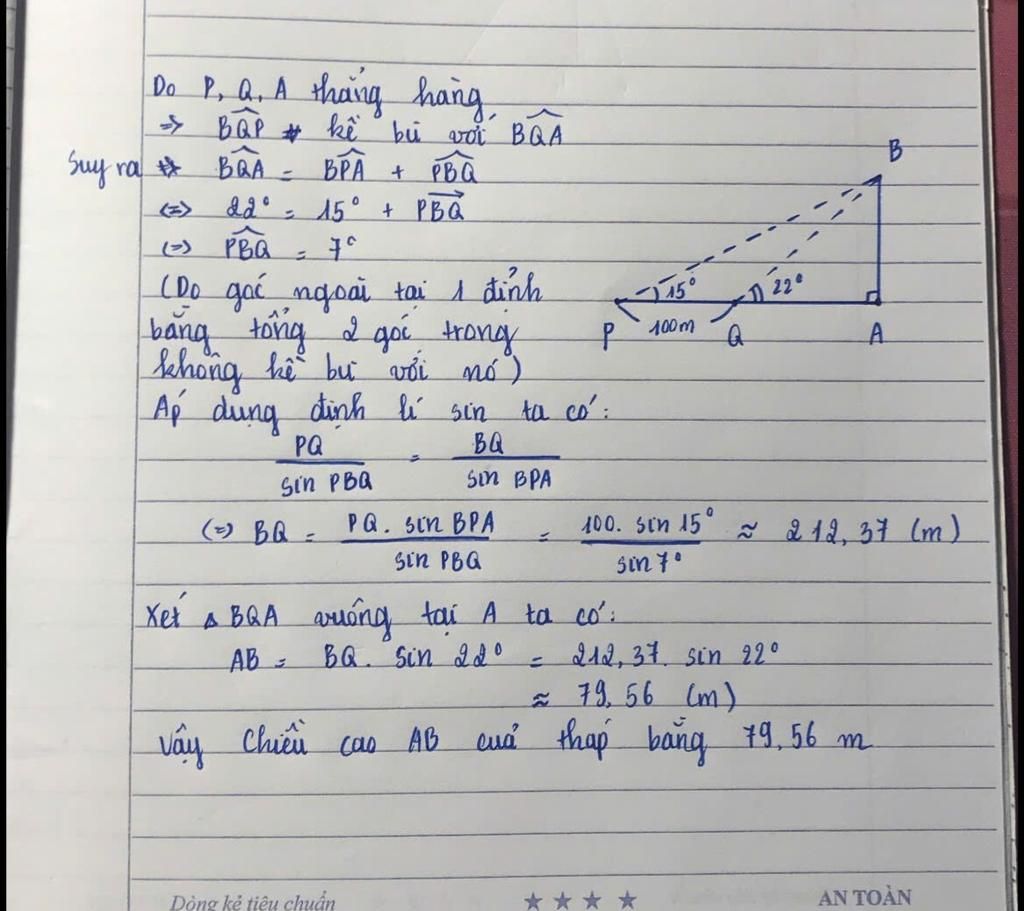 Do P, Q, A thẳng hàng
=> BQP kề bù với BQA
Suy ra BQA = BPA + PBQ
<=> 22° = 15° + PBQ
<=> PBQ = 7°
(Do góc ngoài tại 1 đỉnh
bằng tổng 2 góc trong
không kề bù với nó)
B
15°
22°
P
100m
Q
A
Áp dụng định lí sin ta có:
PQ / sin PBQ = BQ / sin BPA
<=> BQ = PQ. sin BPA / sin PBQ = 100. sin 15° / sin 7° ≈ 212,37 (m)
Xét Δ BQA vuông tại A ta có:
AB = BQ. sin 22° = 212,37. sin 22°
≈ 79,56 (m)
Vậy chiều cao AB của tháp bằng 79,56 m
Dòng kẻ tiêu chuẩn
AN TOÀN